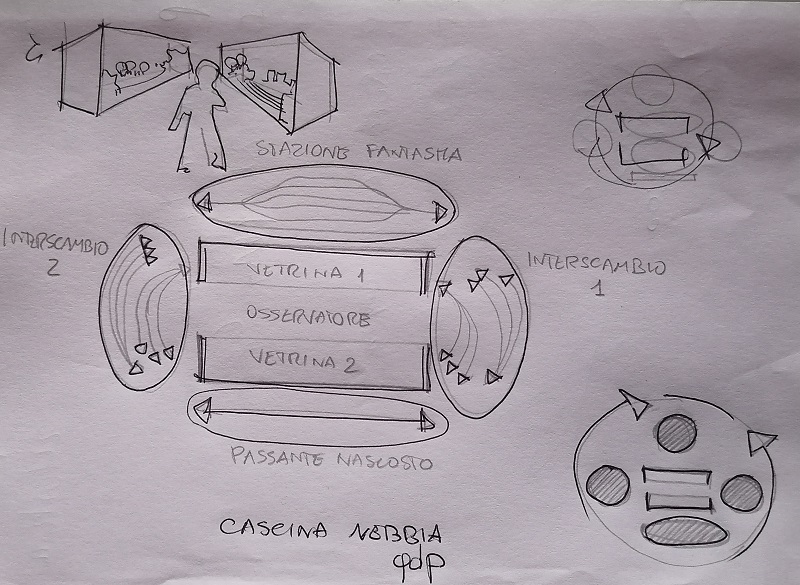 STAZIONE FANTASMA
INTERSCAMBIO
2
VETRINA 1
INTERSCAMBIO
1
OSSERVATORE
VETRINA 2
PASSANTE NASCOSTO
CASCINA NEBBIA